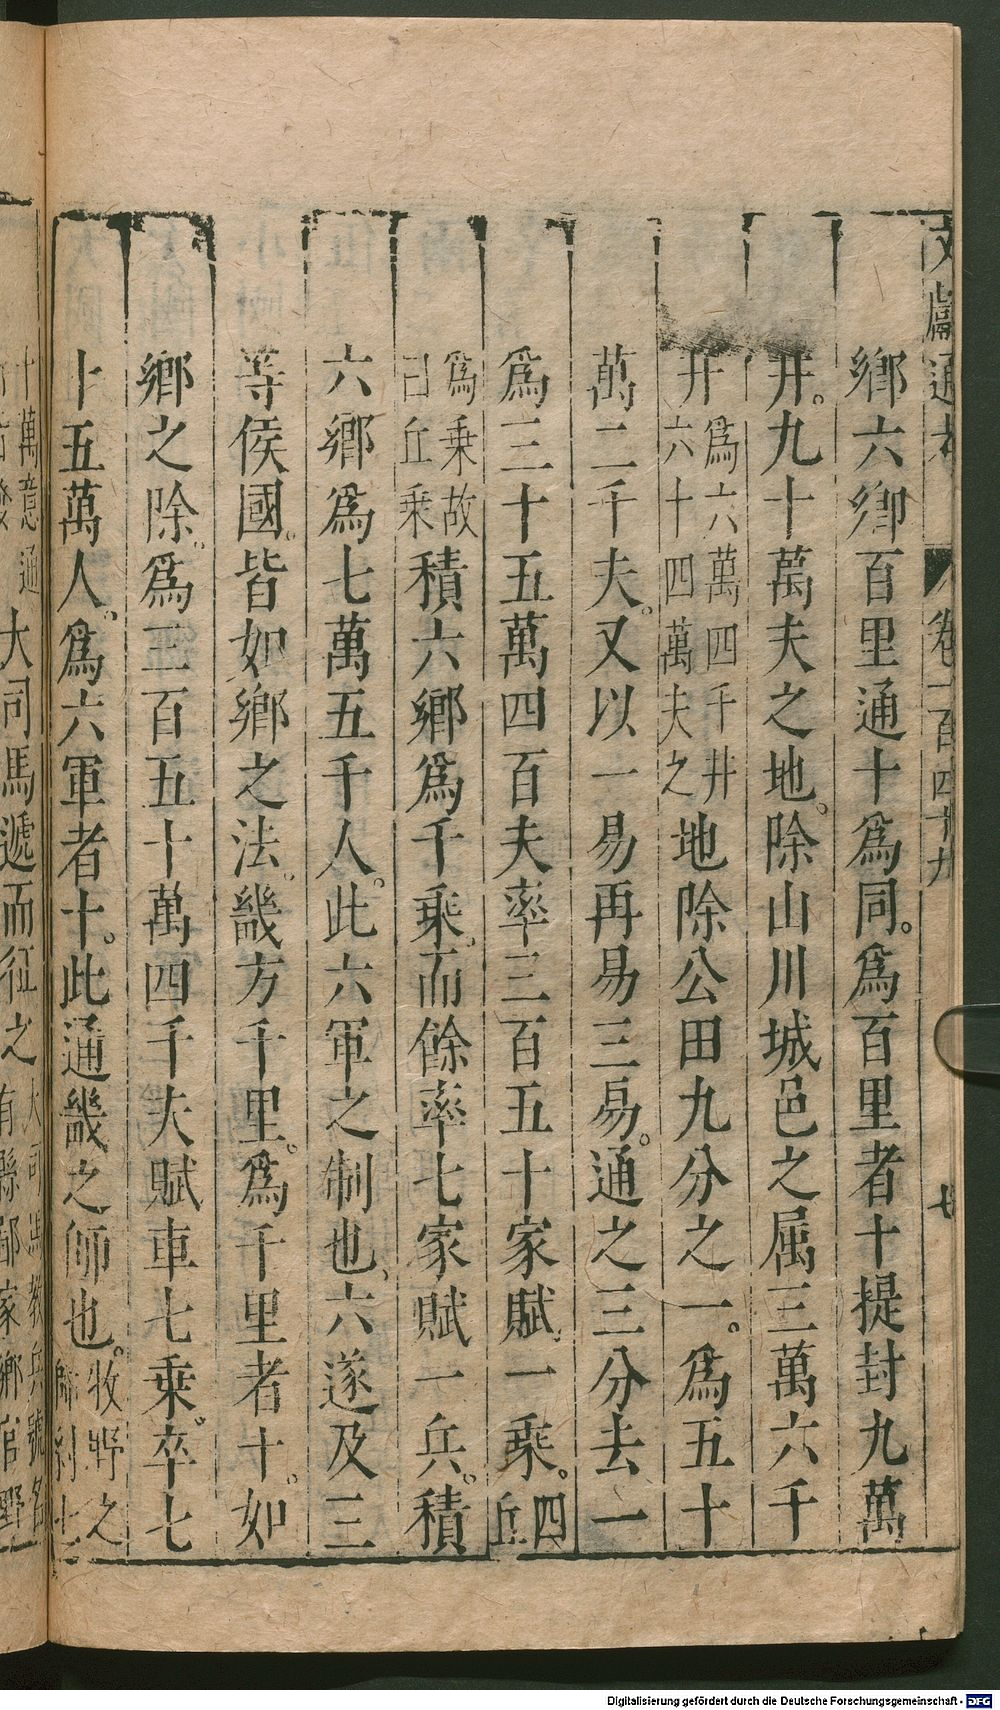 文獻通考 卷一百四十九
鄉六鄉百里通十爲同。爲百里者十提封九萬
井。九十萬夫之地。除山川城邑之屬三萬六千
井爲六萬四千井六十四萬夫之地除公田九分之一。爲五十
萬二千夫。又以一易再易三易。通之三分去一
爲三十五萬四百夫率三百五十家賦一乘。四丘
爲乘故曰丘乘積六鄉爲千乘。而餘率七家賦一兵。積
六鄉爲七萬五千人。此六軍之制也、六遂及三
等侯國。皆如鄉之法。畿方千里。爲千里者十。如
鄉之除。爲三百五十萬四千夫賦車七乘。卒七
十五萬人。爲六軍者十。此通畿之師也。牧野之
大司馬遞而征之
Digitalisierung gefördert durch die Deutsche Forschungsgemeinschaft - DFG